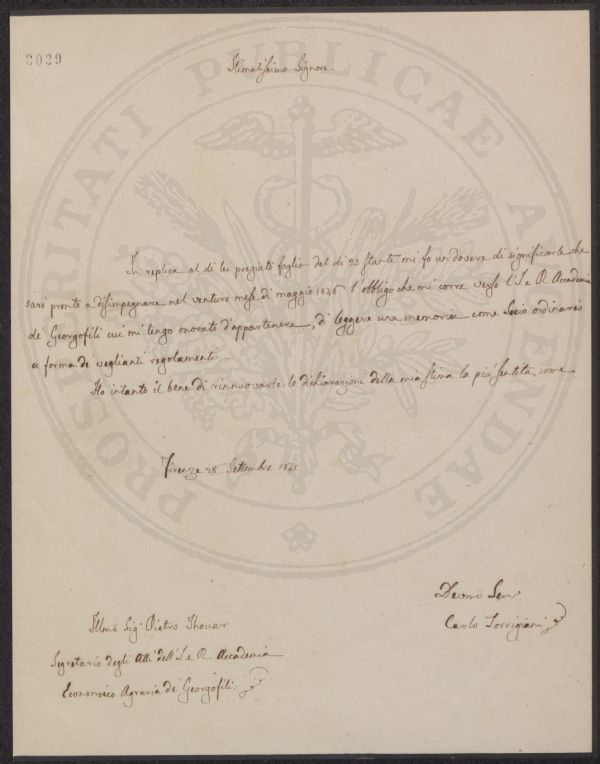 2029
Stimatissimo Signore.
In replica al di lei pregiato foglio del dì 23 stante mi fo un dovere di significarle che
sarò pronto a disimpegnare nel venturo mese di maggio 1846 l'obbligo che mi corre verso l'I. e R. Accademia
de' Georgofili cui mi tengo onorato d'appartenere, di leggere una memoria come Socio ordinario
a forma de' veglianti regolamenti.
Ho intanto il bene di rinnuovarle le dichiarazioni della mia stima la più sentita, come
Firenze 28 Settembre 1845
Devmo Serv
Carlo Torrigiani
Illmo Sig. Pietro Thouar
Segretario degli Atti dell'I. e R. Accademia
Economico Agraria de' Georgofili
PROSPERITATI PUBLICAE AUGENDAE